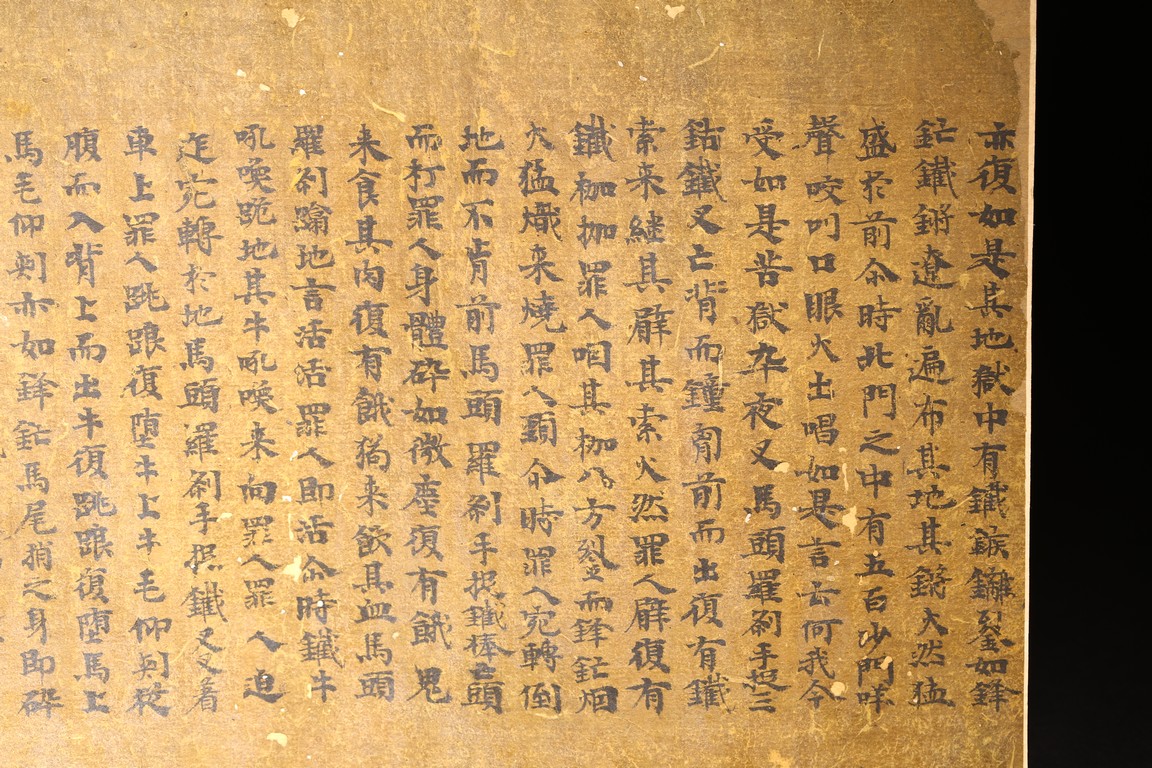 亦復如是其地獄中有鐵鏃鑗䥫如鋒
鋩鐵鏘遼亂遍布其地其鏘火然猛
盛於前尒時北門之中有五百沙門咩
聲咬叫口眼火出唱如是言云何我今
受如是苦獄卒夜叉馬頭羅刹手捉三
鈷鐵叉亡背而鐘胷前而出復有鐵
索来繼其臂其索火然罪人臂復有
鐵枷枷罪人咽其枷八方裂而鋒鋩烟
火猛熾来燒罪人頸尒時罪人宛轉倒
地而不肯前馬頭羅刹手捉鐵棒亡頭
而打罪人身體碎如微塵復有餓鬼
来食其肉復有餓狗来飲其血馬頭
羅刹蹋地言活活罪人即活尒時鐵牛
吼喚跪地其牛吼喚来向罪人罪人迫
迮宛轉於地馬頭羅刹手捉鐵叉叉着
車上罪人跳踉復墮牛上牛毛仰刾從
腹而入背上而出牛復跳踉復墮馬上
馬毛仰刾亦如鋒鋩馬尾捎之身即碎